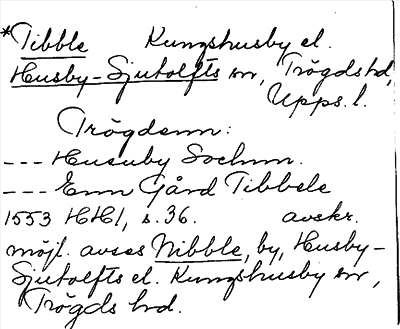 *Tibble Kungshusby el.
Husby-Sjutolfts sn, Trögds hd,
Upps. l.
Trögdenn:
--- Husuby Sochnn.
--- Enn Gård Tibbele
1553 HH1, s. 36. avskr.
möjl. avses Nibble, by, Husby-
Sjutolfts el. Kungshusby sn,
Trögds hd.